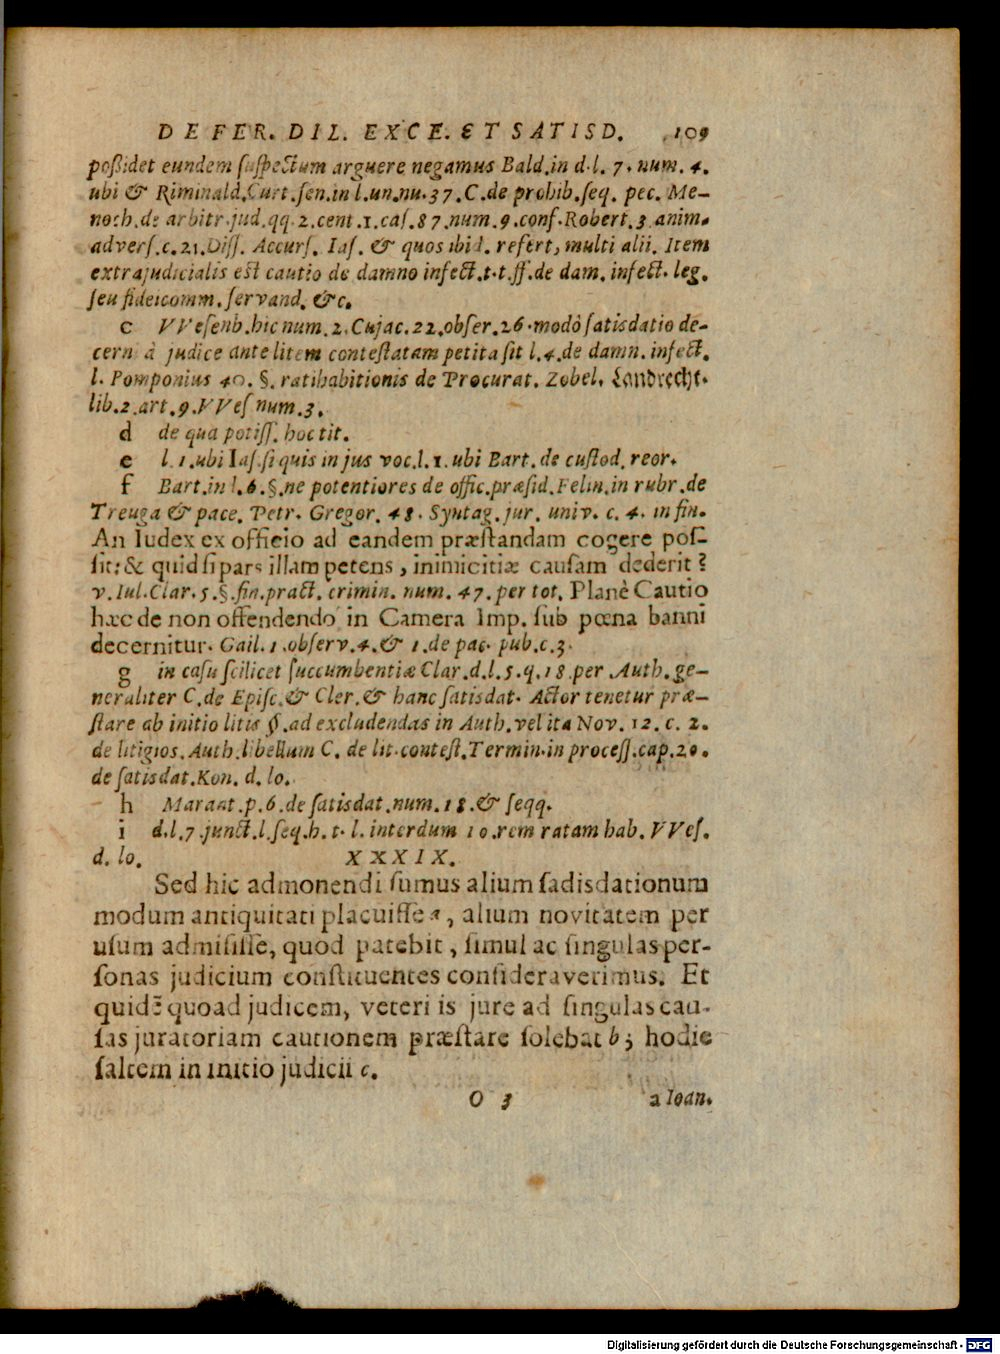 DE FER. DIL. EXCE. ET SATISD. 109
poßidet eundem ſuſpectum arguere negamus Bald.in d.l. 7. num. 4.
ubi & Riminald.Curt.ſen.in l.un.nu.37.C.de prohib.ſeq. pec. Me-
noch.de arbitr.jud.qq.2.cent.1.caſ.87.num.9.conf.Robert.3.anim-
adverſ.c.21.Diſſ. Accurſ. Iaſ. & quos ibid. refert, multi alii. Item
extrajudicialis est cautio de damno infect.t.t.ff.de dam. infect. leg.
ſeu fideicomm. ſervand. &c.
c VVeſenb.hic num.2.Cujac.22.obſer.26.modò ſatisdatio de-
cerni à judice ante litem conteſtatam petita ſit l.4.de damn. infect.
l. Pomponius 40. §. ratihabitionis de Procurat. Zobel. Landrecht.
lib.2.art.9.VVeſ num.3.
d de qua potiſſ. hoc tit.
e l.1.ubi Iaſ.ſi quis in jus voc.l.1.ubi Bart. de custod. reor.
f Bart.in l.6.§.ne potentiores de offic.præſid.Felin.in rubr.de
Treuga & pace. Petr. Gregor. 48. Syntag. jur. univ. c. 4. in fin.
An Iudex ex officio ad eandem præſtandam cogere poſ-
ſit: & quid ſi pars illam petens, inimicitiæ cauſam dederit?
v. Iul.Clar.5.§.fin.pract. crimin. num. 47. per tot. Planè Cautio
hæc de non offendendo in Camera Imp. ſub pœna banni
decernitur. Gail.1.obſerv.4.& 1.de pac. pub.c.3.
g in caſu ſcilicet ſuccumbentiæ Clar.d.l.5.q.18.per Auth.ge-
neraliter C.de Epiſc.& Cler.& hanc ſatisdat. Actor tenetur præ-
ſtare ab initio litis §.ad excludendas in Auth.vel ita Nov. 12. c. 2.
de litigios. Auth.libellum C. de lit.conteſt.Termin.in proceſſ.cap.20.
de ſatisdat.Kon. d. lo.
h Marant.p.6.de ſatisdat.num.18.& ſeqq.
i d.l.7.junct.l.ſeq.h. t. l. interdum 10.rem ratam hab. VVeſ.
d. lo. XXXIX.
Sed hic admonendi ſumus alium ſadisdationum
modum antiquitati placuiſſe a, alium novitatem per
uſum admiſiſſe, quod patebit, ſimul ac ſingulas per-
ſonas judicium conſtituentes conſideraverimus. Et
quidē quoad judicem, veteri is jure ad ſingulas cau-
ſas juratoriam cautionem præſtare ſolebat b; hodie
ſaltem in initio judicii c.
O 3 a Ioan.
Digitalisierung gefördert durch die Deutsche Forschungsgemeinschaft - DFG